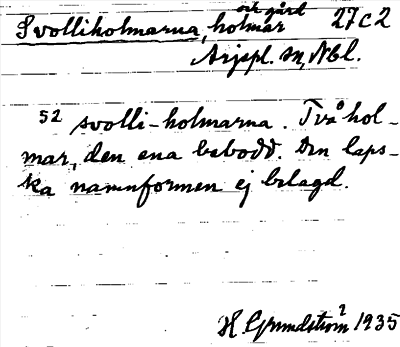 Svolliholmarna, holmar och gård 27C2
Arjepl. sn, Nbl.
52 svolli-holmarna. Två hol-
mar, den ena bebodd. Den laps-
ka namnformen ej belagd.
H Grundström 1935